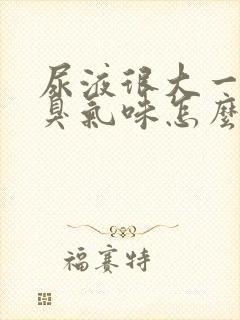 尿液很大一
臭氣味怎麼
福賽特